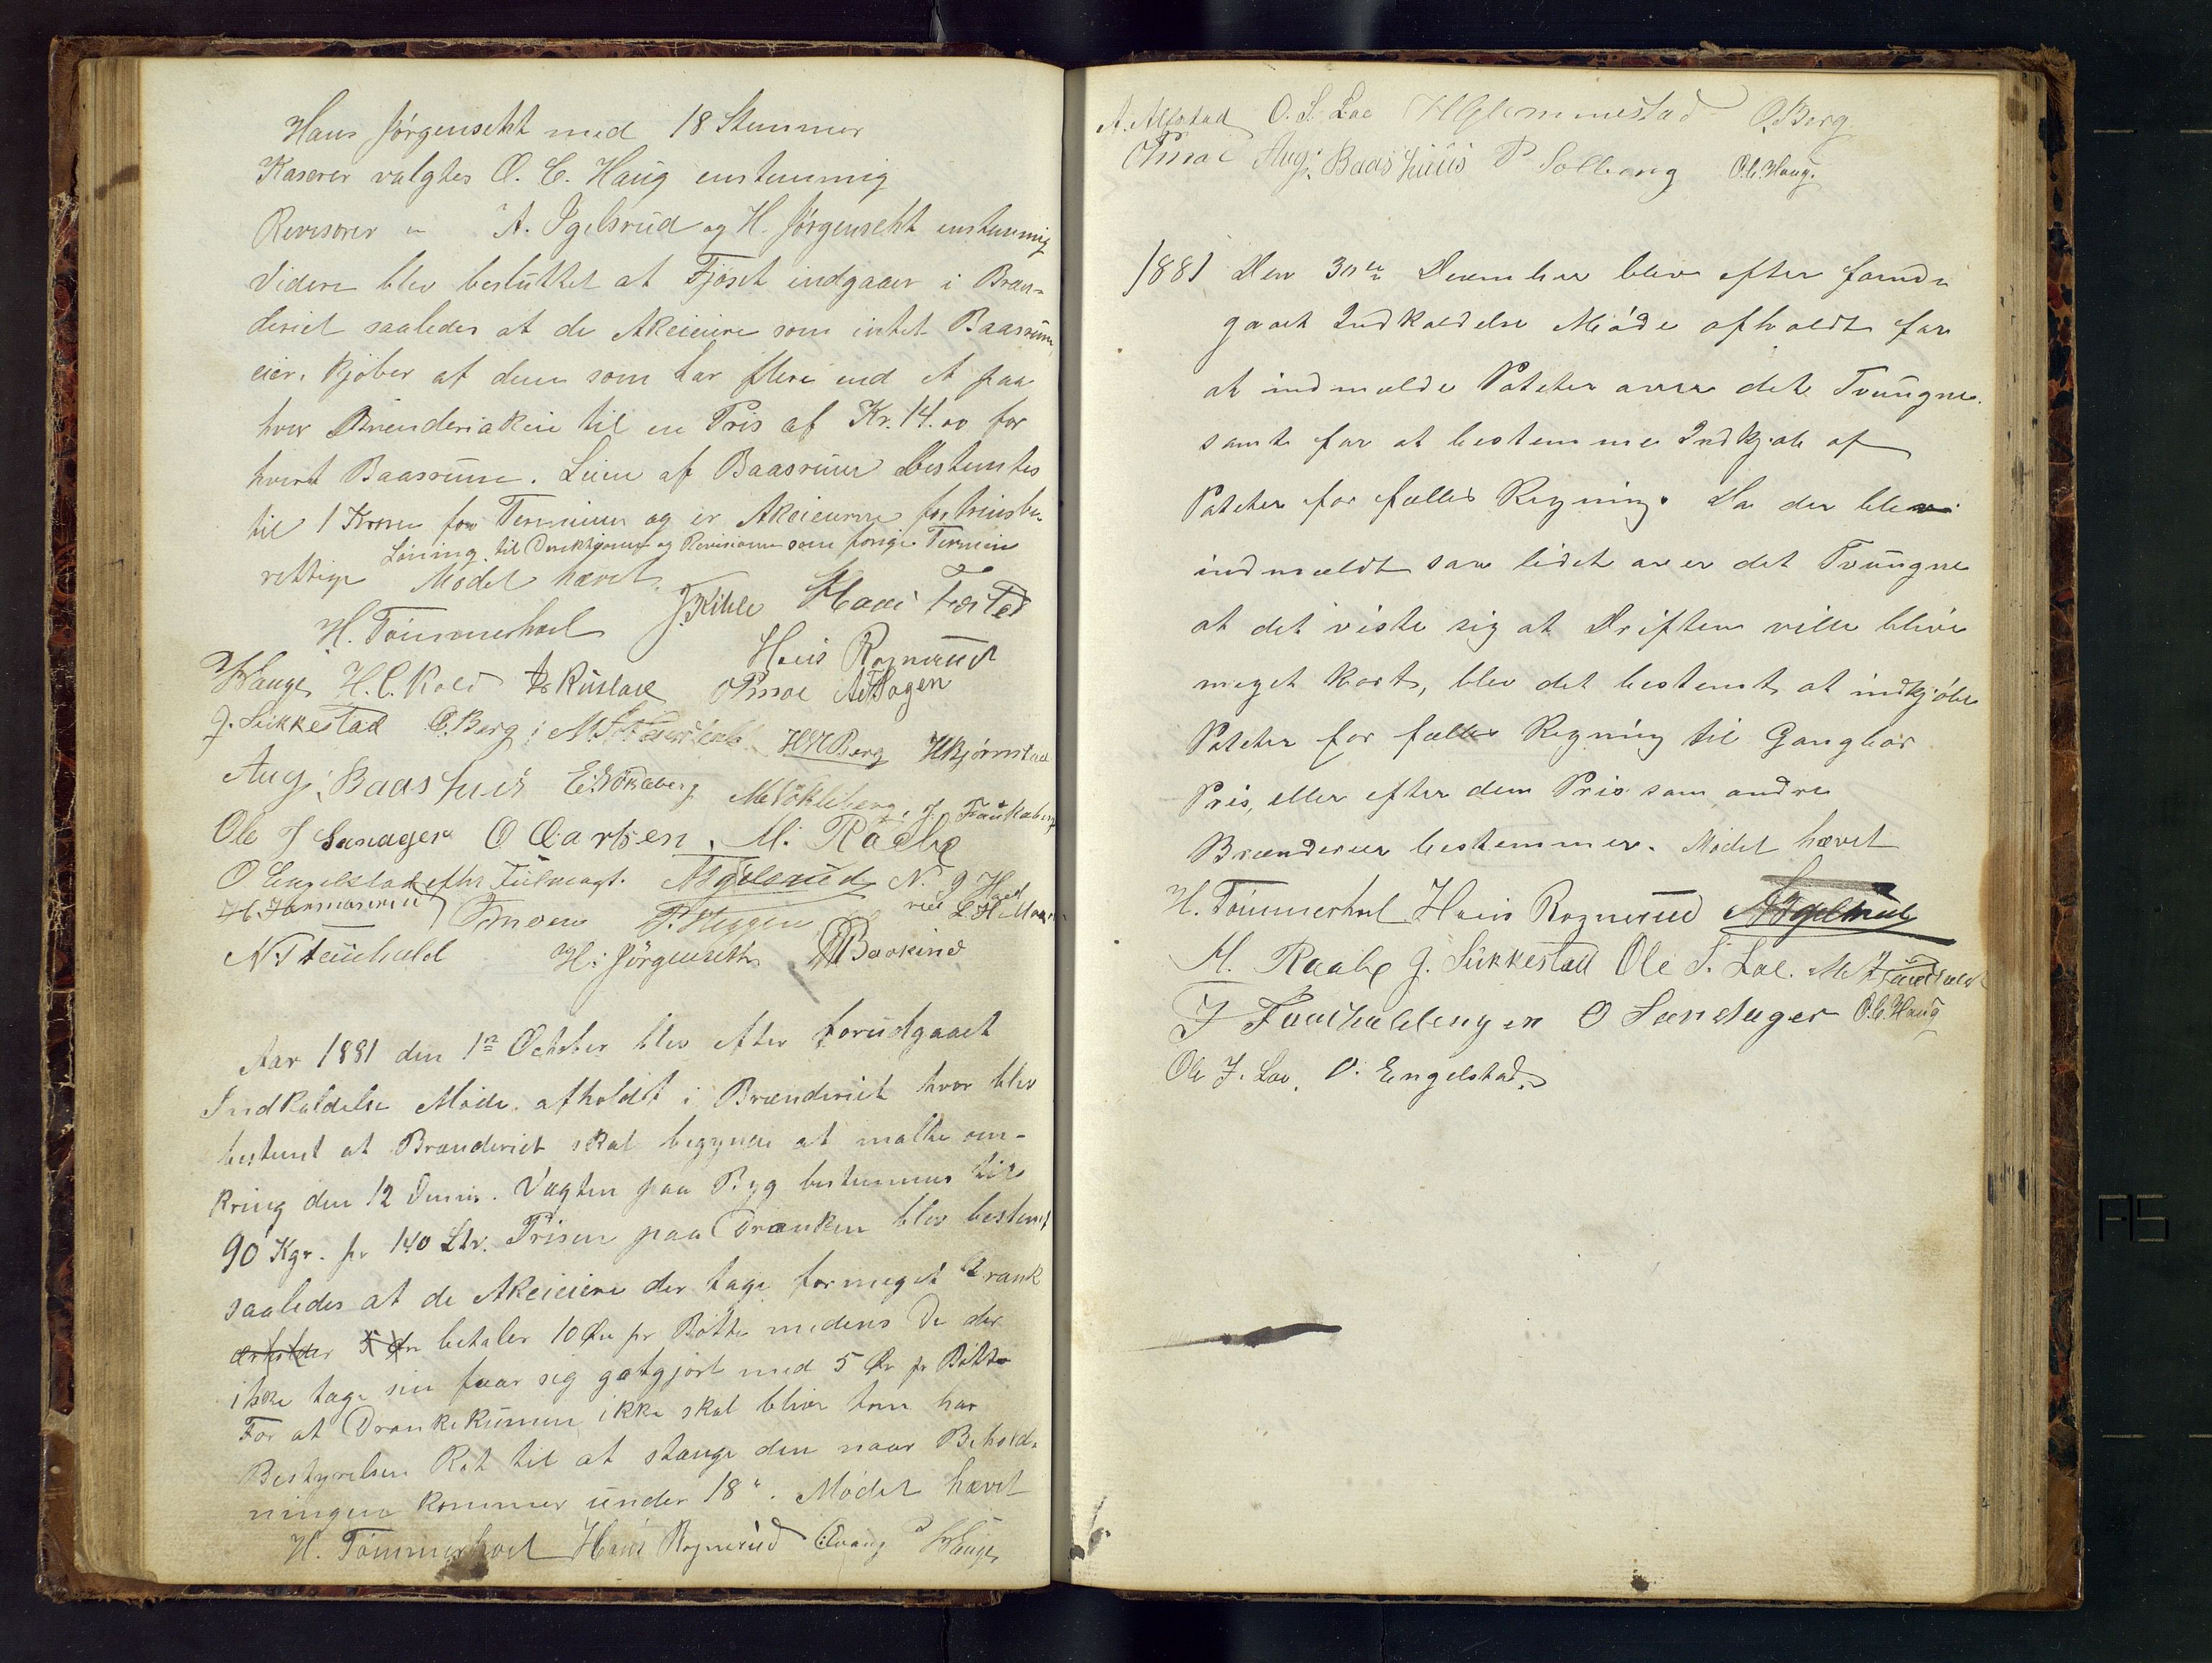 Hans Jörgensekt med 18 Stemmer
Kaserer valgtes O. C. Haug enstemmig
Revisorer " A. Igelsrud og H. Jörgensekt enstemmig
Videre blev besluttet at Fjöset indgaaer i Bræn-
deriet saaledes at de Akeieiere som intet Baasrum
eier, kjöber af dem som har flere end et paa
hver Brænderiakeie til en Pris af Kr. 14.00 for
hvert Baasrum. Leien af Baasrum bestemtes
til 1 Krone for Terminen og er Akeieierne fortrinsbe-
Löning til Direktionen og Revisionen som forige Termin
rettige Mödet hævet
H. Tömmerhol J. Kihle Hans
Hans Rognerud
Hauge H. C. Kold Ruslad O Moe A Hagen
J. Sukkestad O. Berg H N Berg H Bjørnstad
Aug. Baashuus E. Sökleberg M Vökleberg, J. Faukal
Ole J Sanager O Carlsen, M. Raabe
O Engelstad efter Fulmagt. A Igelsrud N. J
ved L. H. Moe
H. Hermanserud Smoen P. Heggen
N. Stenshald H. Jörgenseth Baskind
Aar 1881 den 1n October blev efter forudgaaet
Indkaldelse Möde afholdt i Brænderiet hvor blev
bestemt at Brænderiet skal begynde at malte om-
kring den 12 Dennes. Vægten paa Byg bestemmes til
90 Kgr. pr 140 Ltr. Prisen paa Dranken blev bestemt
saaledes at de Akeieiere der tage formeget Drank
erholder 5 Ør betaler 10 Øre pr Bötte medens De der
ikke tage sin faar sig gotgjort med 5 Ør pr Bötte
For at Drankekummen ikke skal blive tom har
Bestyrelsen Ret til at stænge den naar Behold-
ningen kommer under 18". Mödet hævet
H. Tömmerhol Hans Rognerud Evang Hauge
A. Alfstad O. S. Loe H Glemmestad O. Berg
O Moe Aug. Baashuus P Solberg O. C. Haug.
1881 Den 30te December blev efter forud-
gaaet Indkaldelse Möde afholdt for
at indmelde Poteter over det Tvungne
samt for at bestemme Indkjöb af
Poteter for fælles Regning. Da der blev
indmeldt saa lidet over det Tvungne
at det viste sig at Driften ville blive
meget kort, blev det bestemt at indkjöbe
Poteter for fælles Regning til Gangbar
Pris, eller efter dem Pris som andre
Brænderier bestemmer. Mödet hævet
H. Tömmerhol Hans Rognerud A Igelsrud
M. Raabe J. Sukkestad Ole S. Loe.
J Faukal O Sandager O. C. Haug
Ole J. Loe, O. Engelstad.